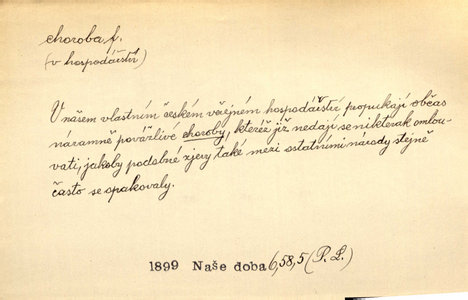 choroba, f.
(v hospodářství)
V našem vlastním českém veřejném hospodářství propukají občas
náramně povážlivé choroby, kteréž již nedají se nikterak omlou-
vati, jakoby podobné zjevy také mezi ostatními národy stejně
často se opakovaly.
1899 Naše doba 6,58,5 (P. L.)